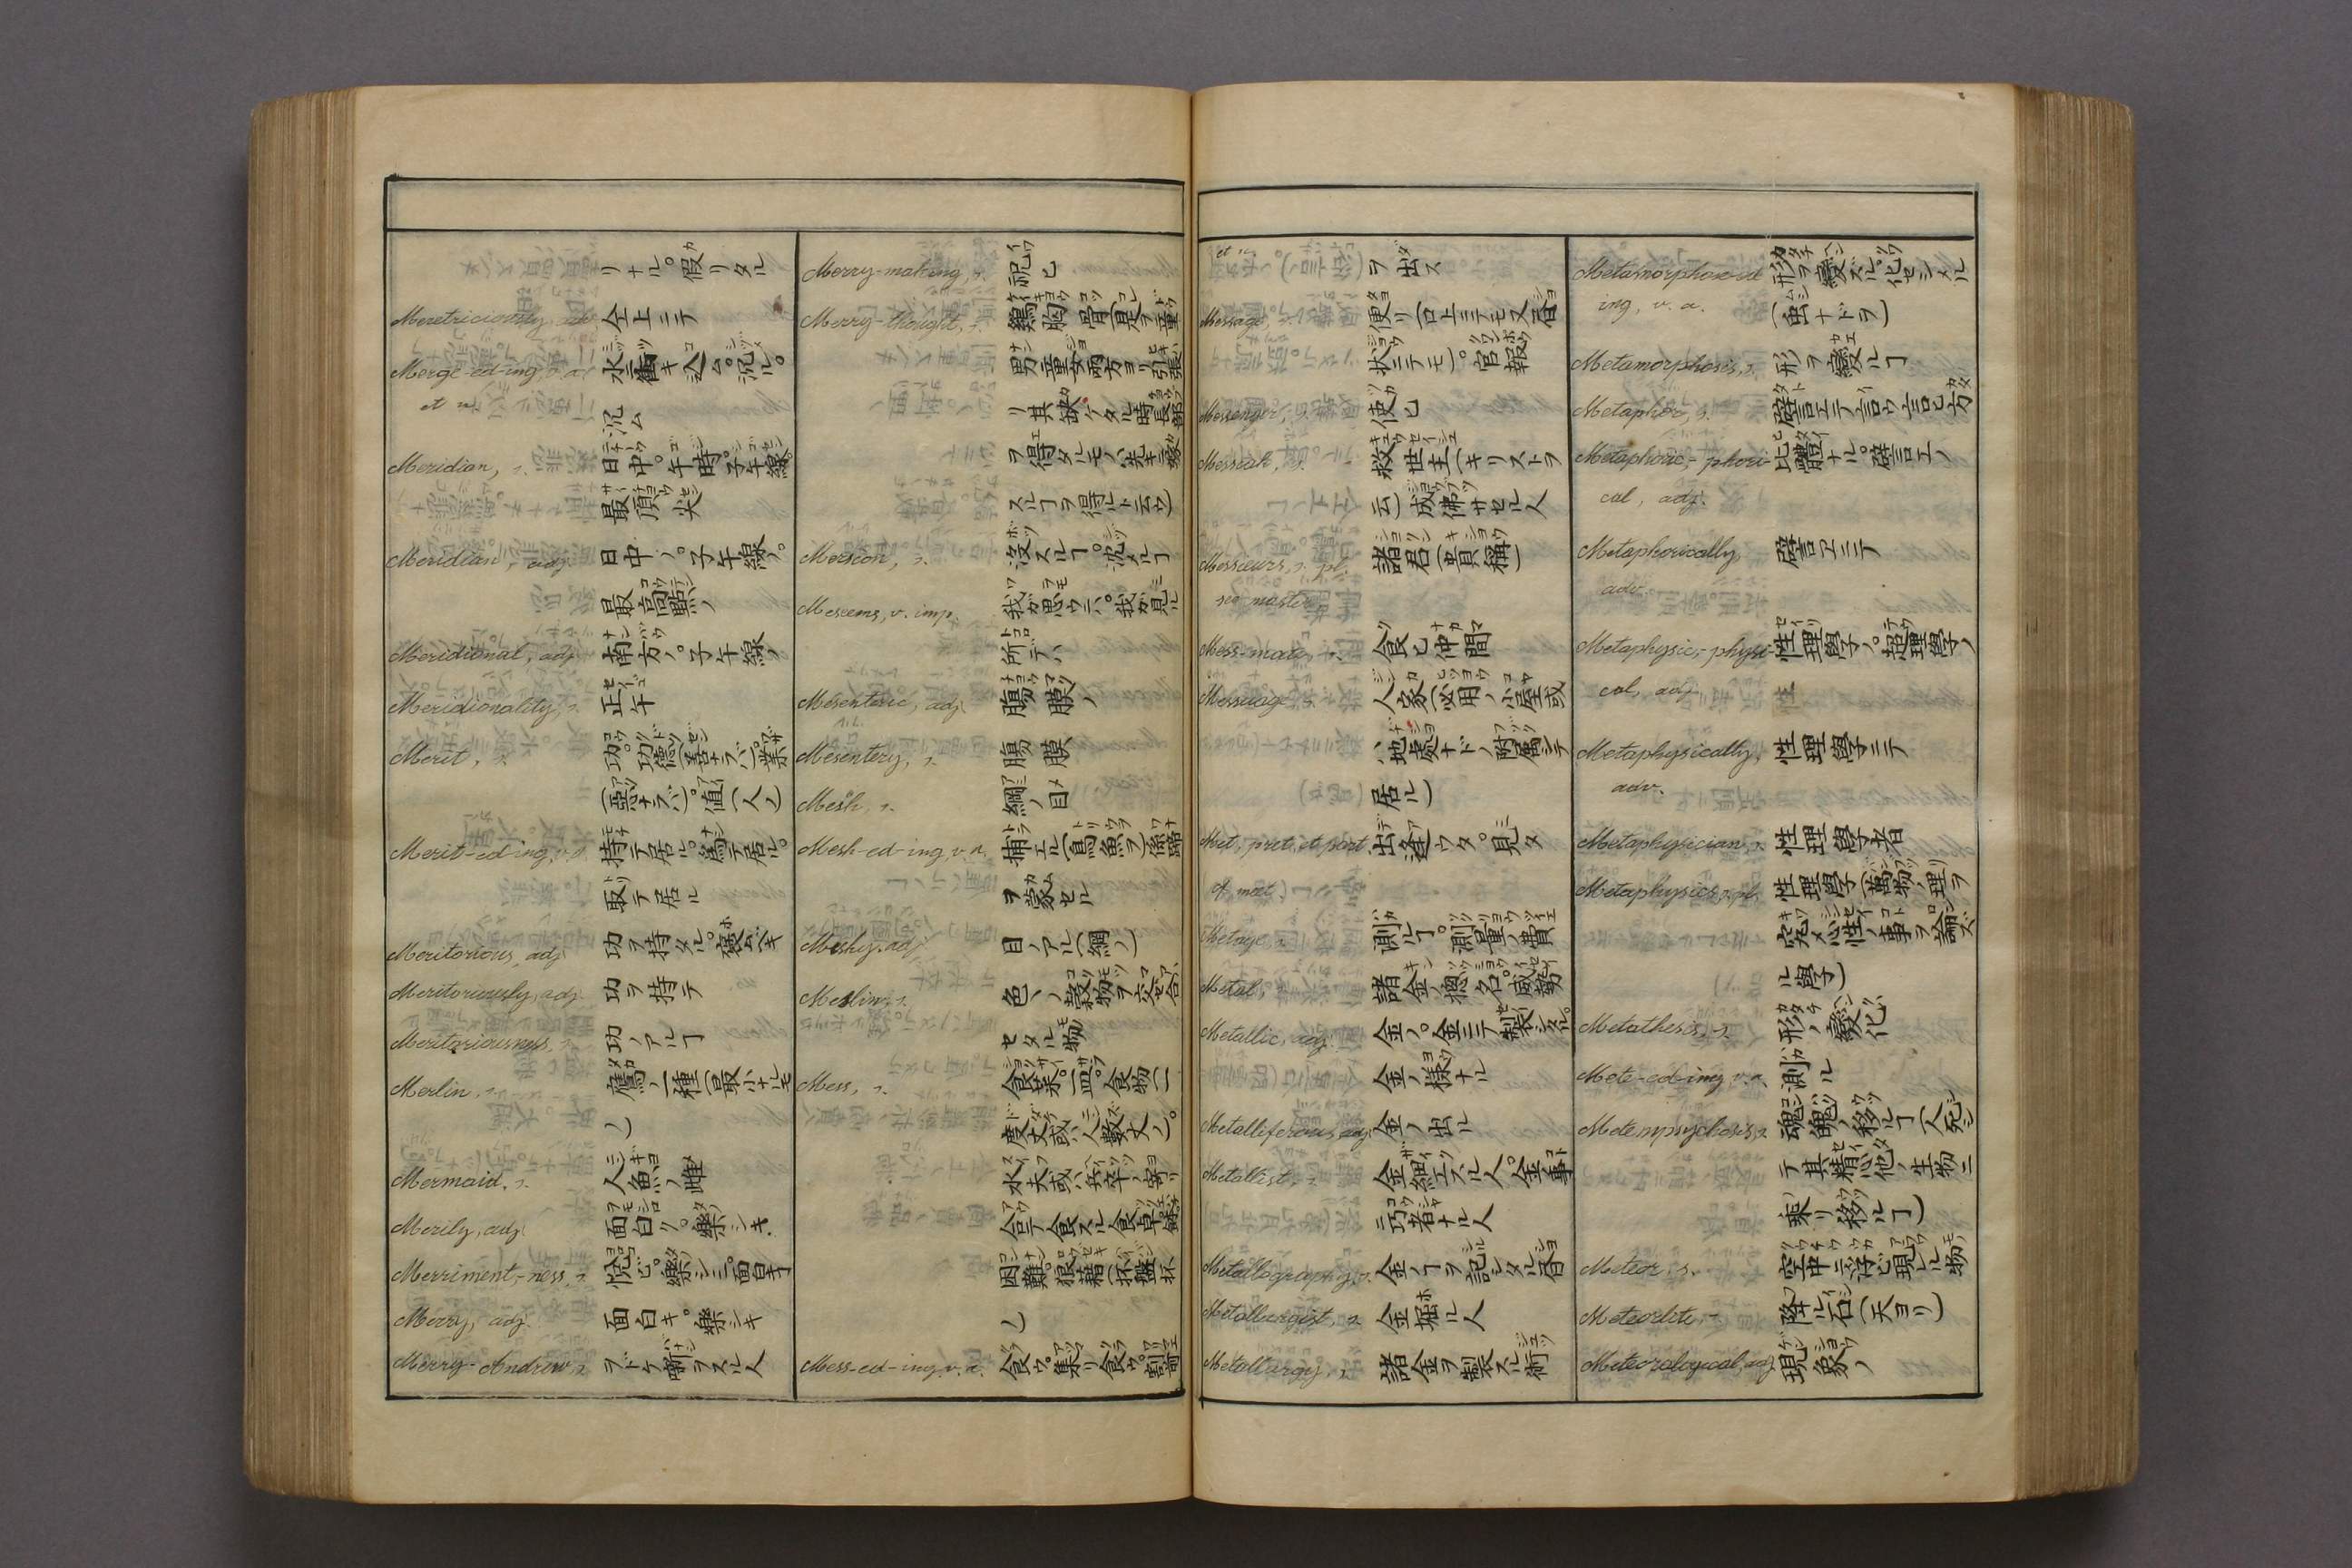 リナル。假リタル
Meretriciously, adv. 仝上ニテ
Merge-ed-ing, v. a. 水ニ衝キ込ム。沉ル。
et n. 沉ム
Meridian, s. 日中。午時。子午線。
最頂尖
Meridian, adj. 日中ノ。子午線ノ。
最高點ノ
Meridional, adj. 南方ノ。子午線ノ
Meridionality, s. 正午
Merit, s. 功。功德(善ナラバ)。業
(惡ナラバ)。値(人ノ)
Merit-ed-ing, v. a. 持テ居ル。為テ居ル。
取テ居ル
Meritorious, adj. 功ヲ持タル。褒ムベキ
Meritoriously, adj. 功ヲ持テ
Meritoriousness, s. 功ノアルヿ
Merlin, s. 鷹ノ一種(最小ナルモ
ノ)
Mermaid, s. 人魚ノ雌
Merily, adj. 面白ク。樂シキ.
Merriment,-ness, s. 悦ビ。樂シミ。面白キヿ
Merry, adj. 面白キ。樂シキ
Merry-Andrew, s. ヲドケ噺ヲスル人
Merry-making, s. 祝ヒ
Merry-thought, s. 鷄ノ胸ノ骨(是ヲ童
男童女兩方ヨリ引裂
リ其缺ケタル時長部
ヲ得タルモノハ先ニ嫁
スルヿヲ得ルト云ウ)
Mersion, s. 沒スルヿ。沈メルヿ
Meseems, v. imp. 我ガ思ウニハ。我ガ見ル
所デハ
Mesenteric, adj. 腸膜ノ
Mesentery, s. 腸膜
Mesh, s. 網ノ目
Mesh-ed-ing, v. a. 捕エル(鳥魚ヲ)係蹄
ヲ蒙セル
Meshy, adj. 目ノアル(網ノ)
Meslin, s. 色々ノ穀物ヲ交セ合
セタル物
Mess, s. 食菜。一皿。食物(一
度丈或ハ人數丈ノ)。
水夫或ハ兵卒ノ寄リ
合テ食スル食卓
困難。狼藉(杯盤抔
ノ)
Mess-ed-ing, v. n. 食ウ。集リ食ウ。
et n. ヲ出ス
Message, s. 便リ(口上ニテモ又書
状ニテモ)。官報
Messenger, s. 使ヒ
Messiah, s. 救世主(キリストヲ
云)成佛サセル人
Messieurs, s. pl. 諸君(貴稱)
see master
Mess-mate, s. 食ヒ仲間
Messuage, s. 人家(必用ノ小屋或
ハ地處ナドノ附屬シテ
居ル)
Met, pret. et part. 出逢ウタ。見タ
of meet.
Metage, s. 測ルヿ。測量ノ費
Metal, s. 諸金ノ總名。威勢
Metallic, adj. 金ノ。金ニテ製シタル。
金ノ樣ナル
Metalliferous, adj. 金ノ出ル
Metallist, s. 金細工スル人。金ノ事
ニ巧者ナル人
Metallography, s. 金ノヿヲ記シタル書
Metallurgist, s. 金堀ル人
Metallurgy, s. 諸金ヲ製スル術
Metamorphose-ed 形ヲ變ズル。化セシメル
ing, v. a. (虫ナドヲ)
Metamorphosis, s. 形ヲ變ルヿ
Metaphor, s. 譬言エテ言ウ言ヒ方
Metaphoric,-phori- 比體ナル。譬言エノ
cal, adj.
Metaphorically, 譬言エニテ
adv.
Metaphysic,-physi- 性理學ノ。超理學ノ
cal, adj. 性
Metaphysically, 性理學ニテ
adv.
Metaphysician, s. 性理學者
Metaphysics, s. pl. 性理學(萬物ノ理ヲ
究メ心性ノ事ヲ論ズ
ル學)
Metathesis, s. 形ノ變化
Mete-ed-ing, v. a. 測ル
Metempsychosis, s. 魂魄ノ移ルヿ(人死シ
テ其精心他ノ生物ニ
乘リ移ルヿ)
Meteor, s. 空中ニ浮ビ現ルル物
Meteorlite, s. 降ル石(天ヨリ)
Meteorological, adj. 現象ノ